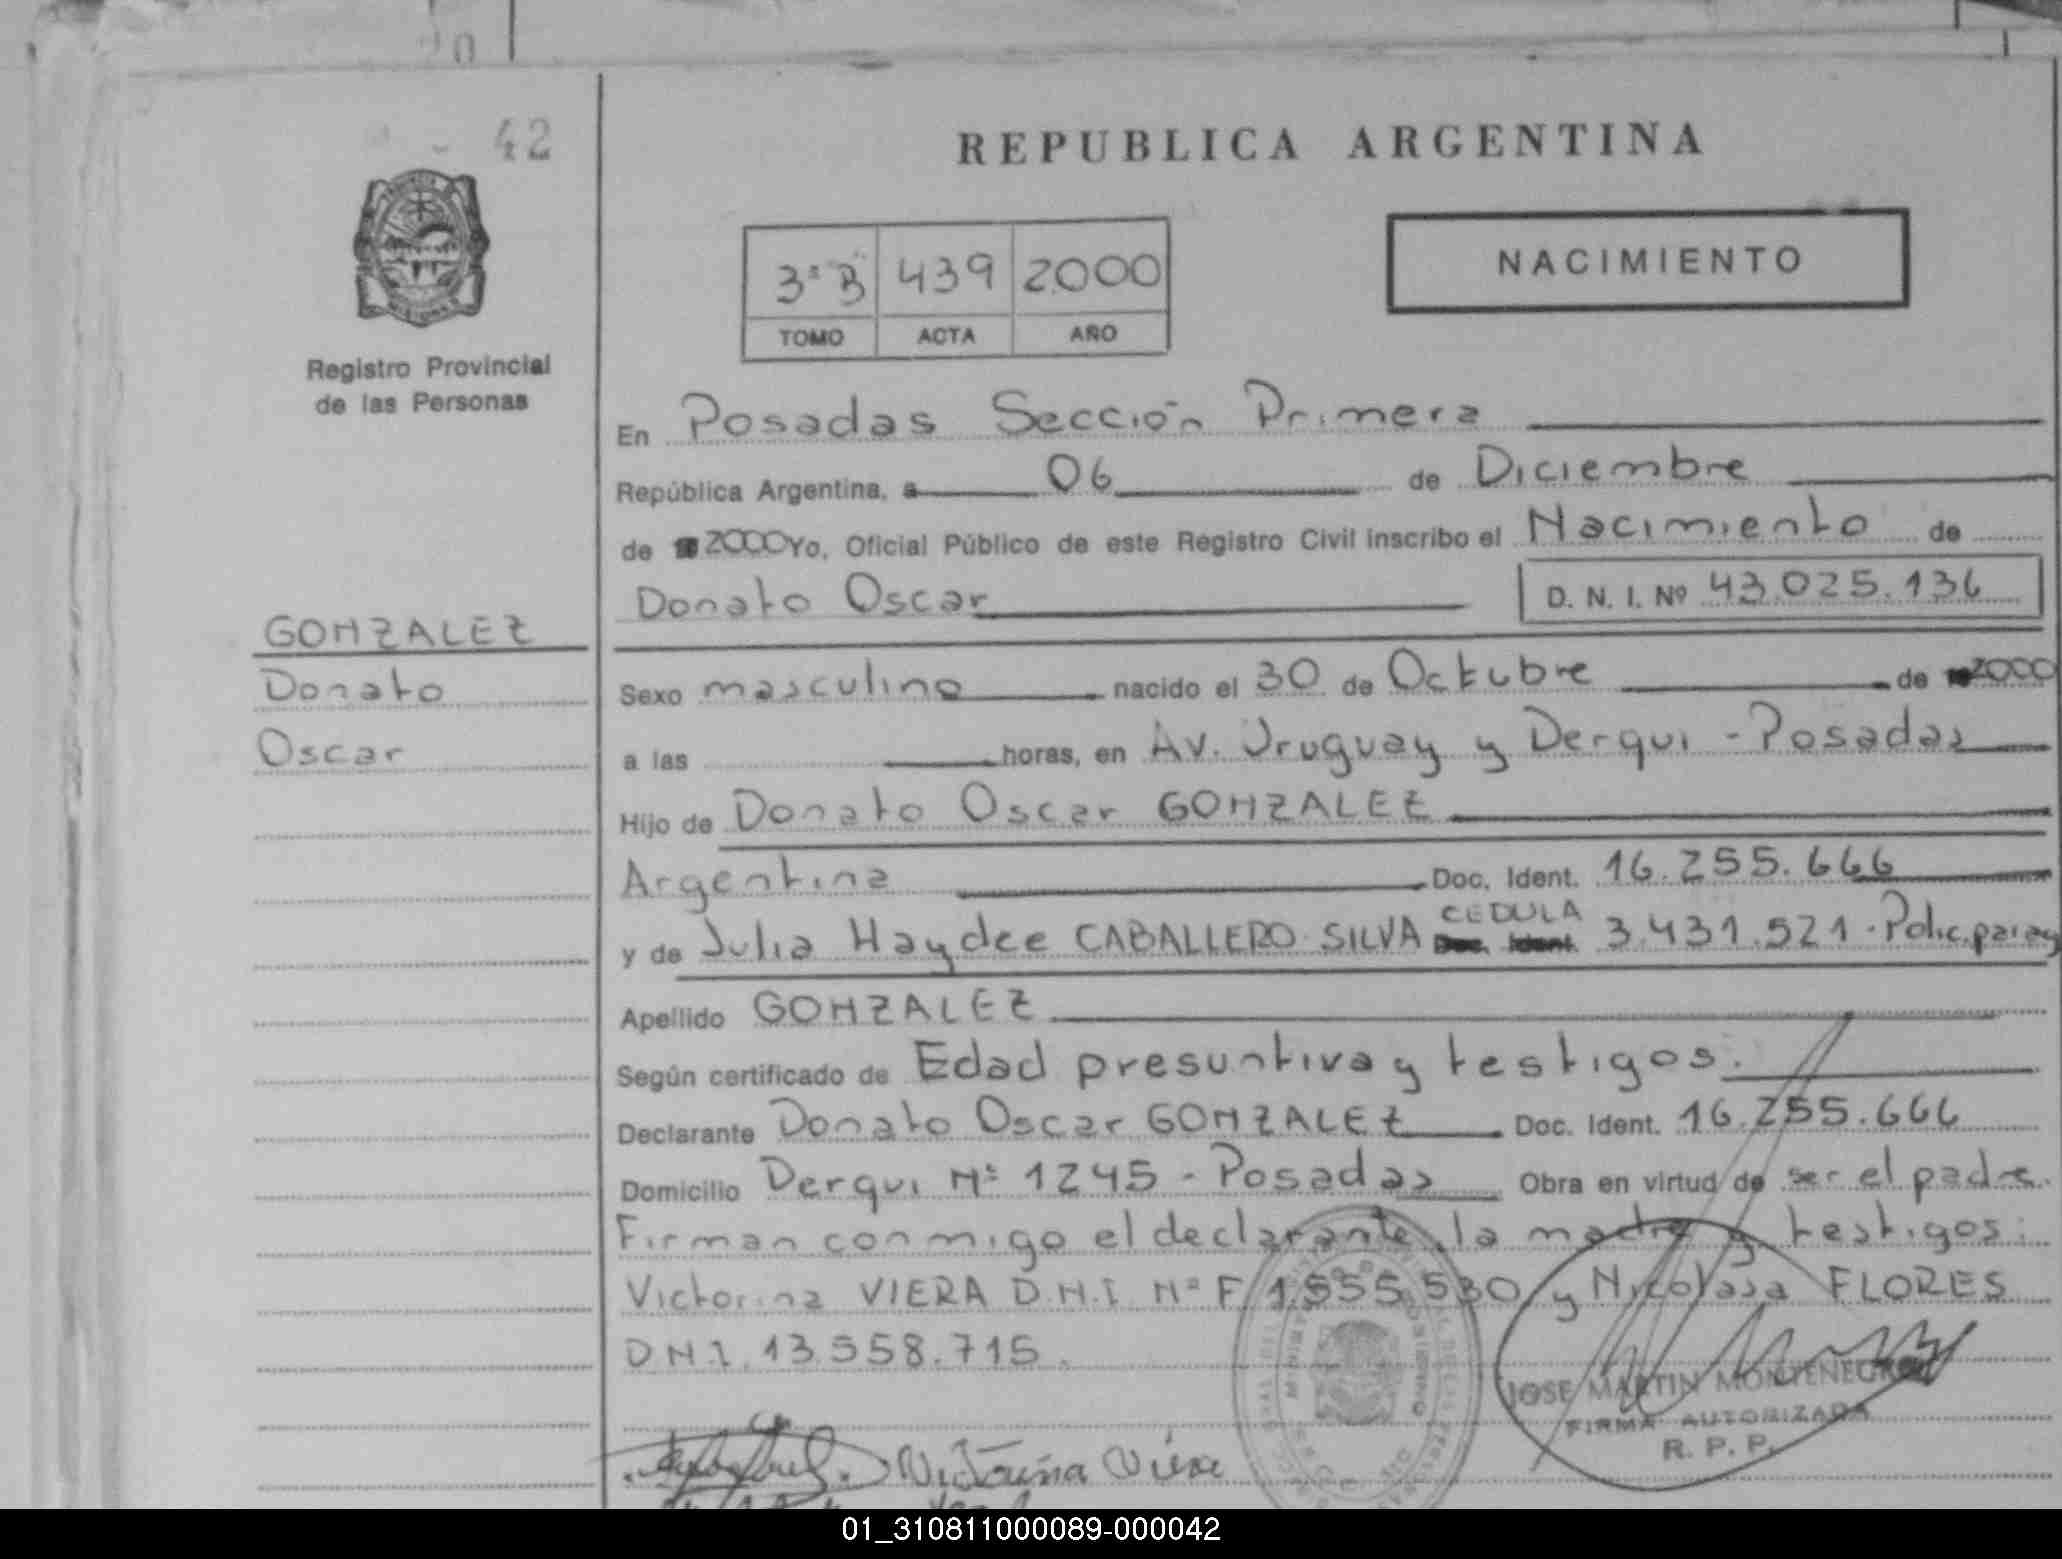 42
REPUBLICA ARGENTINA
3ª B 439 2000
TOMO ACTA AÑO
NACIMIENTO
Registro Provincial
de las Personas
En Posadas Sección Primera
República Argentina, a 06 de Diciembre
de 2000 Yo, Oficial Público de este Registro Civil inscribo el Nacimiento de
Donato Oscar D. N. I. Nº 43.025.136
GONZALEZ
Donato
Oscar
Sexo masculino nacido el 30 de Octubre de 2000
a las horas, en Av. Uruguay y Derqui - Posadas
Hijo de Donato Oscar GONZALEZ
Argentina Doc. Ident. 16.255.666
CEDULA
y de Julia Haydee CABALLERO SILVA Doc. Ident. 3.431.521 - Polic. paray
Apellido GONZALEZ
Según certificado de Edad presuntiva y testigos.
Declarante Donato Oscar GONZALEZ Doc. Ident. 16.255.666
Domicilio Derqui Nº 1245 - Posadas Obra en virtud de ser el padre.
Firman conmigo el declarante, la madre y testigos:
Victorina VIERA D.N.I. Nº F 1.555.530 y Nicolasa FLORES
D.N.I. 13.558.715.
JOSE MARTIN MONTENEGRO
FIRMA AUTORIZADA
R. P. P.
Victorina Viera
01_310811000089-000042